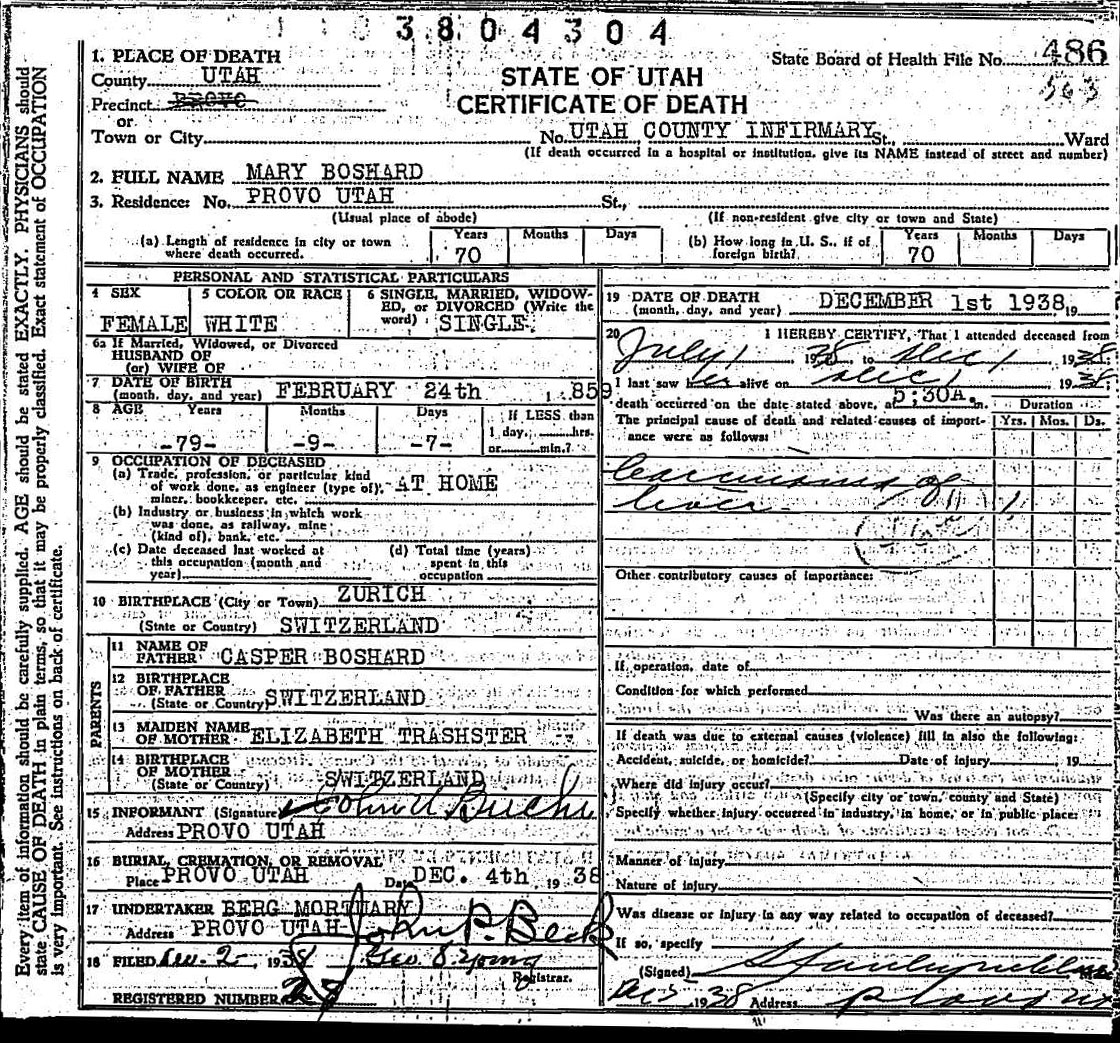 3804304
1. PLACE OF DEATH
State Board of Health File No. 486
County UTAH
STATE OF UTAH
563
Precinct PROVO
CERTIFICATE OF DEATH
or
Town or City
No. UTAH COUNTY INFIRMARY St., Ward
(If death occurred in a hospital or institution, give its NAME instead of street and number)
2. FULL NAME MARY BOSHARD
3. Residence: No. PROVO UTAH St.,
(Usual place of abode) (If non-resident give city or town and State)
(a) Length of residence in city or town where death occurred. Years 70 Months Days
(b) How long in U. S., if of foreign birth? Years 70 Months Days
PERSONAL AND STATISTICAL PARTICULARS
4 SEX FEMALE
5 COLOR OR RACE WHITE
6 SINGLE, MARRIED, WIDOW-
ED, or DIVORCED (Write the
word) SINGLE
6a If Married, Widowed, or Divorced
HUSBAND OF
(or) WIFE OF
7 DATE OF BIRTH
(month, day, and year) FEBRUARY 24th 859
8 AGE Years Months Days If LESS than
1 day, hrs.
-79- -9- -7- or min.?
9 OCCUPATION OF DECEASED
(a) Trade, profession, or particular kind
of work done, as engineer (type of), AT HOME
miner, bookkeeper, etc.
(b) Industry or business in which work
was done, as railway, mine
(kind of), bank, etc.
(c) Date deceased last worked at
this occupation (month and
year)
(d) Total time (years)
spent in this
occupation
10 BIRTHPLACE (City or Town) ZURICH
(State or Country) SWITZERLAND
PARENTS
11 NAME OF
FATHER CASPER BOSHARD
12 BIRTHPLACE
OF FATHER
(State or Country) SWITZERLAND
13 MAIDEN NAME
OF MOTHER ELIZABETH TRASHSTER
14 BIRTHPLACE
OF MOTHER
(State or Country) SWITZERLAND
15 INFORMANT (Signature John U Buchi
Address PROVO UTAH
16 BURIAL, CREMATION, OR REMOVAL
Place PROVO UTAH Date DEC. 4th 1938
17 UNDERTAKER BERG MORTUARY
Address PROVO UTAH John P. Beck
18 FILED Dec. 2 1938 Geo S. Young
Registrar.
REGISTERED NUMBER
19 DATE OF DEATH
(month, day, and year) DECEMBER 1st 1938 19
20 I HEREBY CERTIFY, That I attended deceased from
July 1 1938 to Dec 1 1938
I last saw her alive on Dec 1 1938
death occurred on the date stated above, at 5:30A. m. Duration
The principal cause of death and related causes of import-
ance were as follows: Yrs. Mos. Ds.
Carcinoma of
liver 1
Other contributory causes of importance:
If operation, date of
Condition for which performed
Was there an autopsy?
If death was due to external causes (violence) fill in also the following:
Accident, suicide, or homicide? Date of injury 19
Where did injury occur?
(Specify city or town, county and State)
Specify whether injury occurred in industry, in home, or in public place:
Manner of injury
Nature of injury
Was disease or injury in any way related to occupation of deceased?
If so, specify
(Signed)
Dec 5 1938 Address Provo
Every item of information should be carefully supplied. AGE should be stated EXACTLY. PHYSICIANS should
state CAUSE OF DEATH in plain terms, so that it may be properly classified. Exact statement of OCCUPATION
is very important. See instructions on back of certificate.